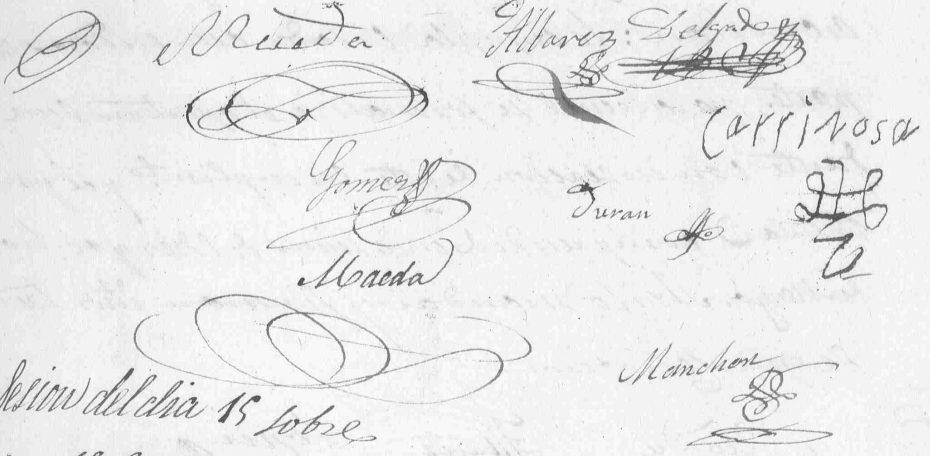 Alvarez Delgado
Carrinosa
Gomez
Duran
Maeda
Menchon
Sesion del dia 15 sobre